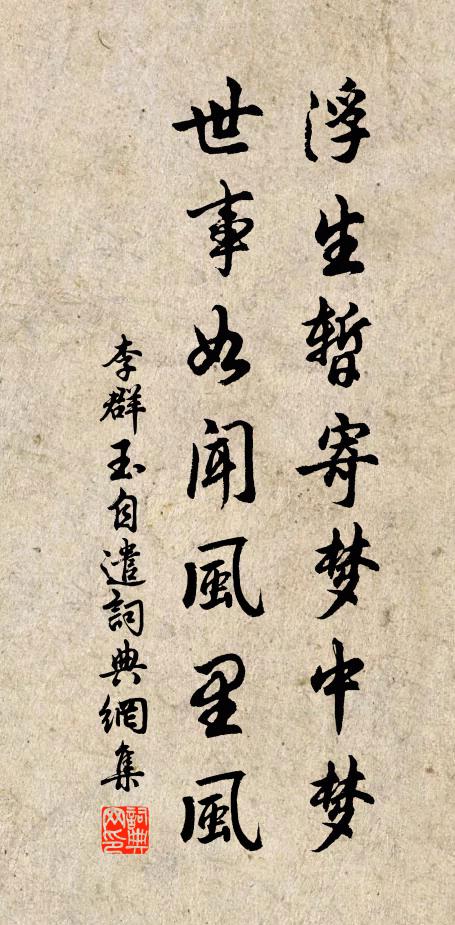 浮生暂寄梦中梦
世事如闻風里風
李群玉自遣詞典網集
詞典网印